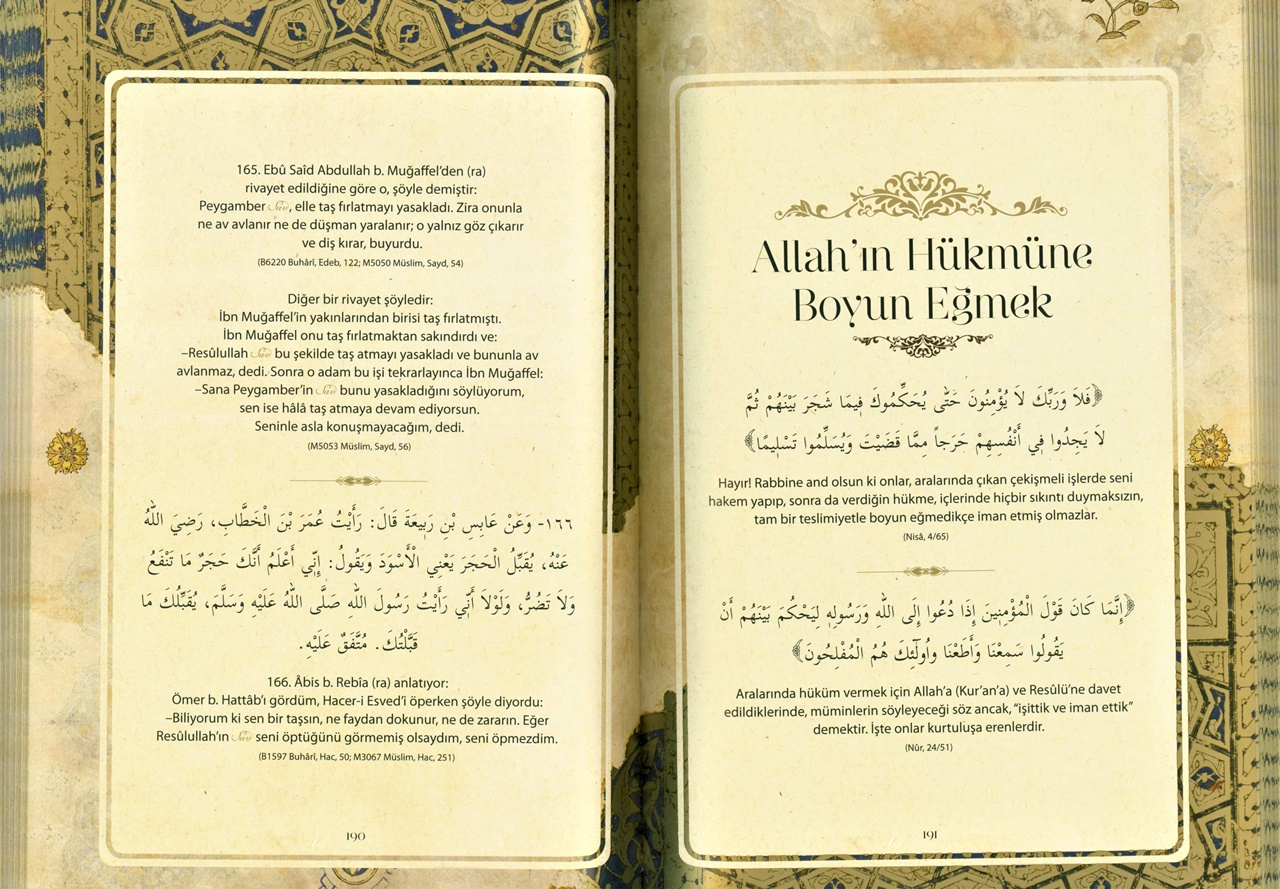 165. Ebû Saîd Abdullah b. Muğaffel’den (ra)
rivayet edildiğine göre o, şöyle demiştir:
Peygamber Sav, elle taş fırlatmayı yasakladı. Zira onunla
ne av avlanır ne de düşman yaralanır; o yalnız göz çıkarır
ve diş kırar, buyurdu.
(B6220 Buhârî, Edeb, 122; M5050 Müslim, Sayd, 54)
Diğer bir rivayet şöyledir:
İbn Muğaffel’in yakınlarından birisi taş fırlatmıştı.
İbn Muğaffel onu taş fırlatmaktan sakındırdı ve:
–Resûlullah Sav bu şekilde taş atmayı yasakladı ve bununla av
avlanmaz, dedi. Sonra o adam bu işi tekrarlayınca İbn Muğaffel:
–Sana Peygamber’in Sav bunu yasakladığını söylüyorum,
sen ise hâlâ taş atmaya devam ediyorsun.
Seninle asla konuşmayacağım, dedi.
(M5053 Müslim, Sayd, 56)
١٦٦- وَعَنْ عَابِسِ بْنِ رَبِيعَةَ قَالَ: رَأَيْتُ عُمَرَ بْنَ الْخَطَّابِ، رَضِيَ اللهُ
عَنْهُ، يُقَبِّلُ الْحَجَرَ يَعْنِي الْأَسْوَدَ وَيَقُولُ: إِنِّي أَعْلَمُ أَنَّكَ حَجَرٌ مَا تَنْفَعُ
وَلاَ تَضُرُّ، وَلَوْلاَ أَنِّي رَأَيْتُ رَسُولَ اللهِ صَلَّى اللهُ عَلَيْهِ وَسَلَّمَ، يُقَبِّلُكَ مَا
قَبَّلْتُكَ. مُتَّفَقٌ عَلَيْهِ.
166. Âbis b. Rebîa (ra) anlatıyor:
Ömer b. Hattâb’ı gördüm, Hacer-i Esved’i öperken şöyle diyordu:
–Biliyorum ki sen bir taşsın, ne faydan dokunur, ne de zararın. Eğer
Resûlullah’ın Sav seni öptüğünü görmemiş olsaydım, seni öpmezdim.
(B1597 Buhârî, Hac, 50; M3067 Müslim, Hac, 251)
190
Allah’ın Hükmüne
Boyun Eğmek
﴿فَلاَ وَرَبِّكَ لاَ يُؤْمِنُونَ حَتَّى يُحَكِّمُوكَ فِيمَا شَجَرَ بَيْنَهُمْ ثُمَّ
لاَ يَجِدُوا فِي أَنْفُسِهِمْ حَرَجاً مِمَّا قَضَيْتَ وَيُسَلِّمُوا تَسْلِيمًا﴾
Hayır! Rabbine and olsun ki onlar, aralarında çıkan çekişmeli işlerde seni
hakem yapıp, sonra da verdiğin hükme, içlerinde hiçbir sıkıntı duymaksızın,
tam bir teslimiyetle boyun eğmedikçe iman etmiş olmazlar.
(Nisâ, 4/65)
﴿إِنَّمَا كَانَ قَوْلَ الْمُؤْمِنِينَ إِذَا دُعُوا إِلَى اللهِ وَرَسُولِهِ لِيَحْكُمَ بَيْنَهُمْ أَنْ
يَقُولُوا سَمِعْنَا وَأَطَعْنَا وَأُولَئِكَ هُمُ الْمُفْلِحُونَ﴾
Aralarında hüküm vermek için Allah’a (Kur’an’a) ve Resûlü’ne davet
edildiklerinde, müminlerin söyleyeceği söz ancak, “işittik ve iman ettik”
demektir. İşte onlar kurtuluşa erenlerdir.
(Nûr, 24/51)
191